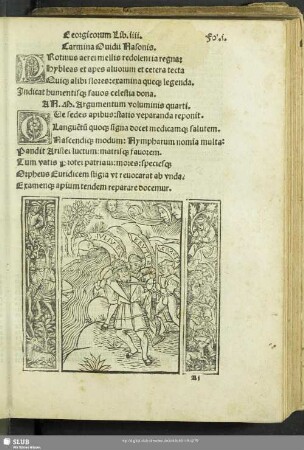 Georgicorum Lib. iiii.
Carmina Ouidii Nasonis.
PRotinus aerei mellis redolentia regna:
Hybleas et apes aluorum et cerea tecta
Quiq; alibi flores: examina queq; legenda.
Indicat humentisq; fauos celestia dona.
Argumentum voluminis quarti.
sedes apibus: statio reparanda reponit.
Languentũ quoq; signa docet medicamq; salutem.
Nascendiq; modum: Nympharum nomia multa:
Pandit Aristei luctum: matrisq; fauorem.
Tum vatis protei patriam: mores: speciesq;
Orpheus Euridicem stigia vt reuocarat ab vnda.
Examenq; apium tandem reparare docemur.
SLUB